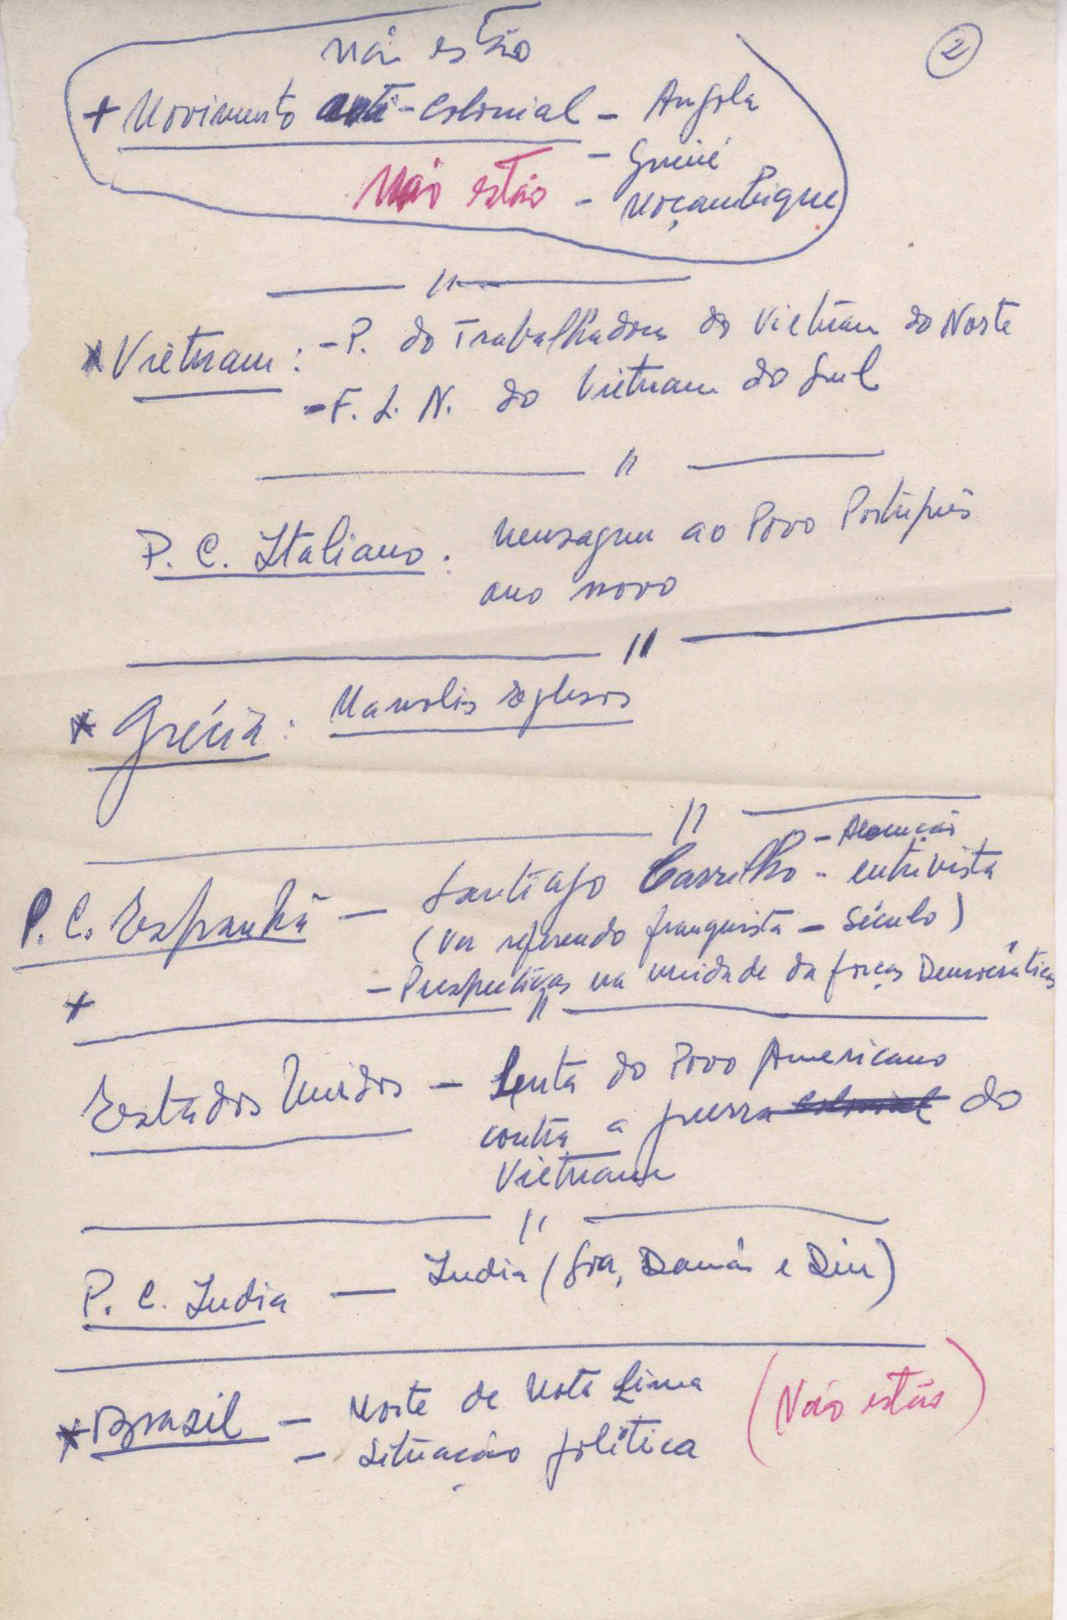 2
Não estão
+ Movimento anti-colonial - Angola
- Guiné
Não estão - Moçambique
//
* Vietnam: - P. do Trabalhadores do Vietnam do Norte
- F. L. N. do Vietnam do Sul
//
P. C. Italiano: Mensagem ao Povo Português
ano novo
//
* Grécia: Manolis
//
- Alocução
P. C. Espanha - Santiago Carrilho - entrevista
(Ver referendo franquista - Século)
+ - Perspectivas na unidade da forças Democráticas
//
Estados Unidos - Luta do Povo Americano
contra a guerra colonial do
Vietnam
//
P. C. India - India (Goa, Damão e Diu)
* Brasil - Morte de Mota Lima (Não estão)
- Situação política